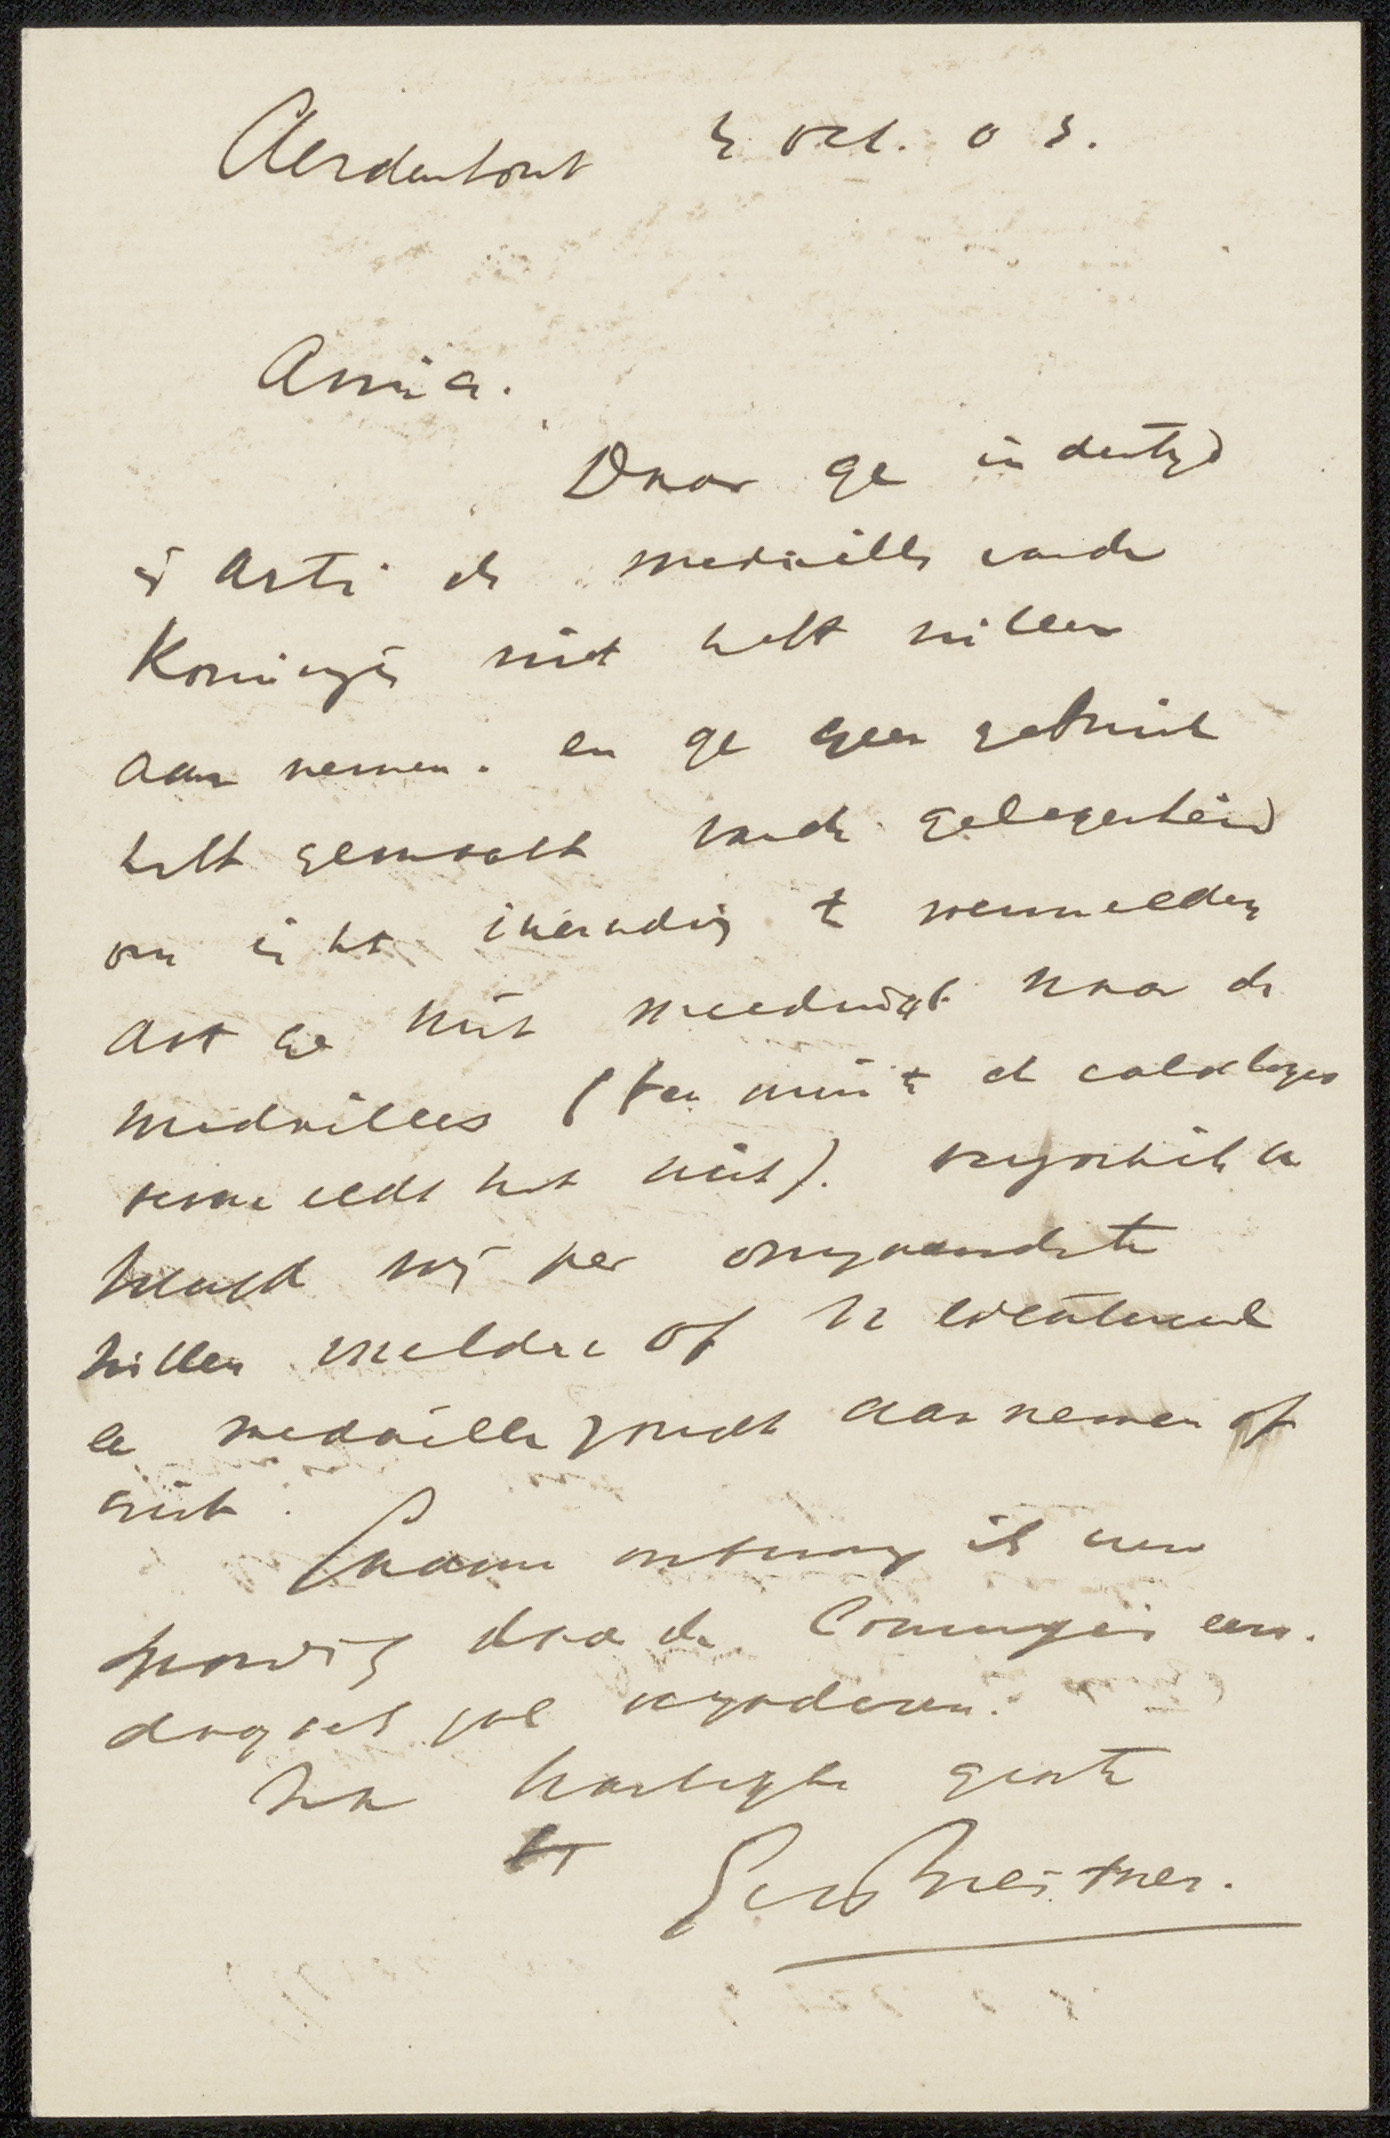 Aerdenhout 5 oct. 03.
Amice.
Daar ge indertyd
in Arti de medaille van de
Koningin niet hebt willen
aan nemen. en ge geen gebruik
hebt gemaakt van de gelegenheid
om in het te vermelden
dat ge niet meedingt naar de
medailles (ten minste de catalogus
vermeldt het niet).
 per omgaande te
willen melden of U eventueel
de medaille zoudt aannemen of
niet.
 ontvang ik een
 daar de Commissie eer-
daags zal vergaderen.
Met hartelyke groete